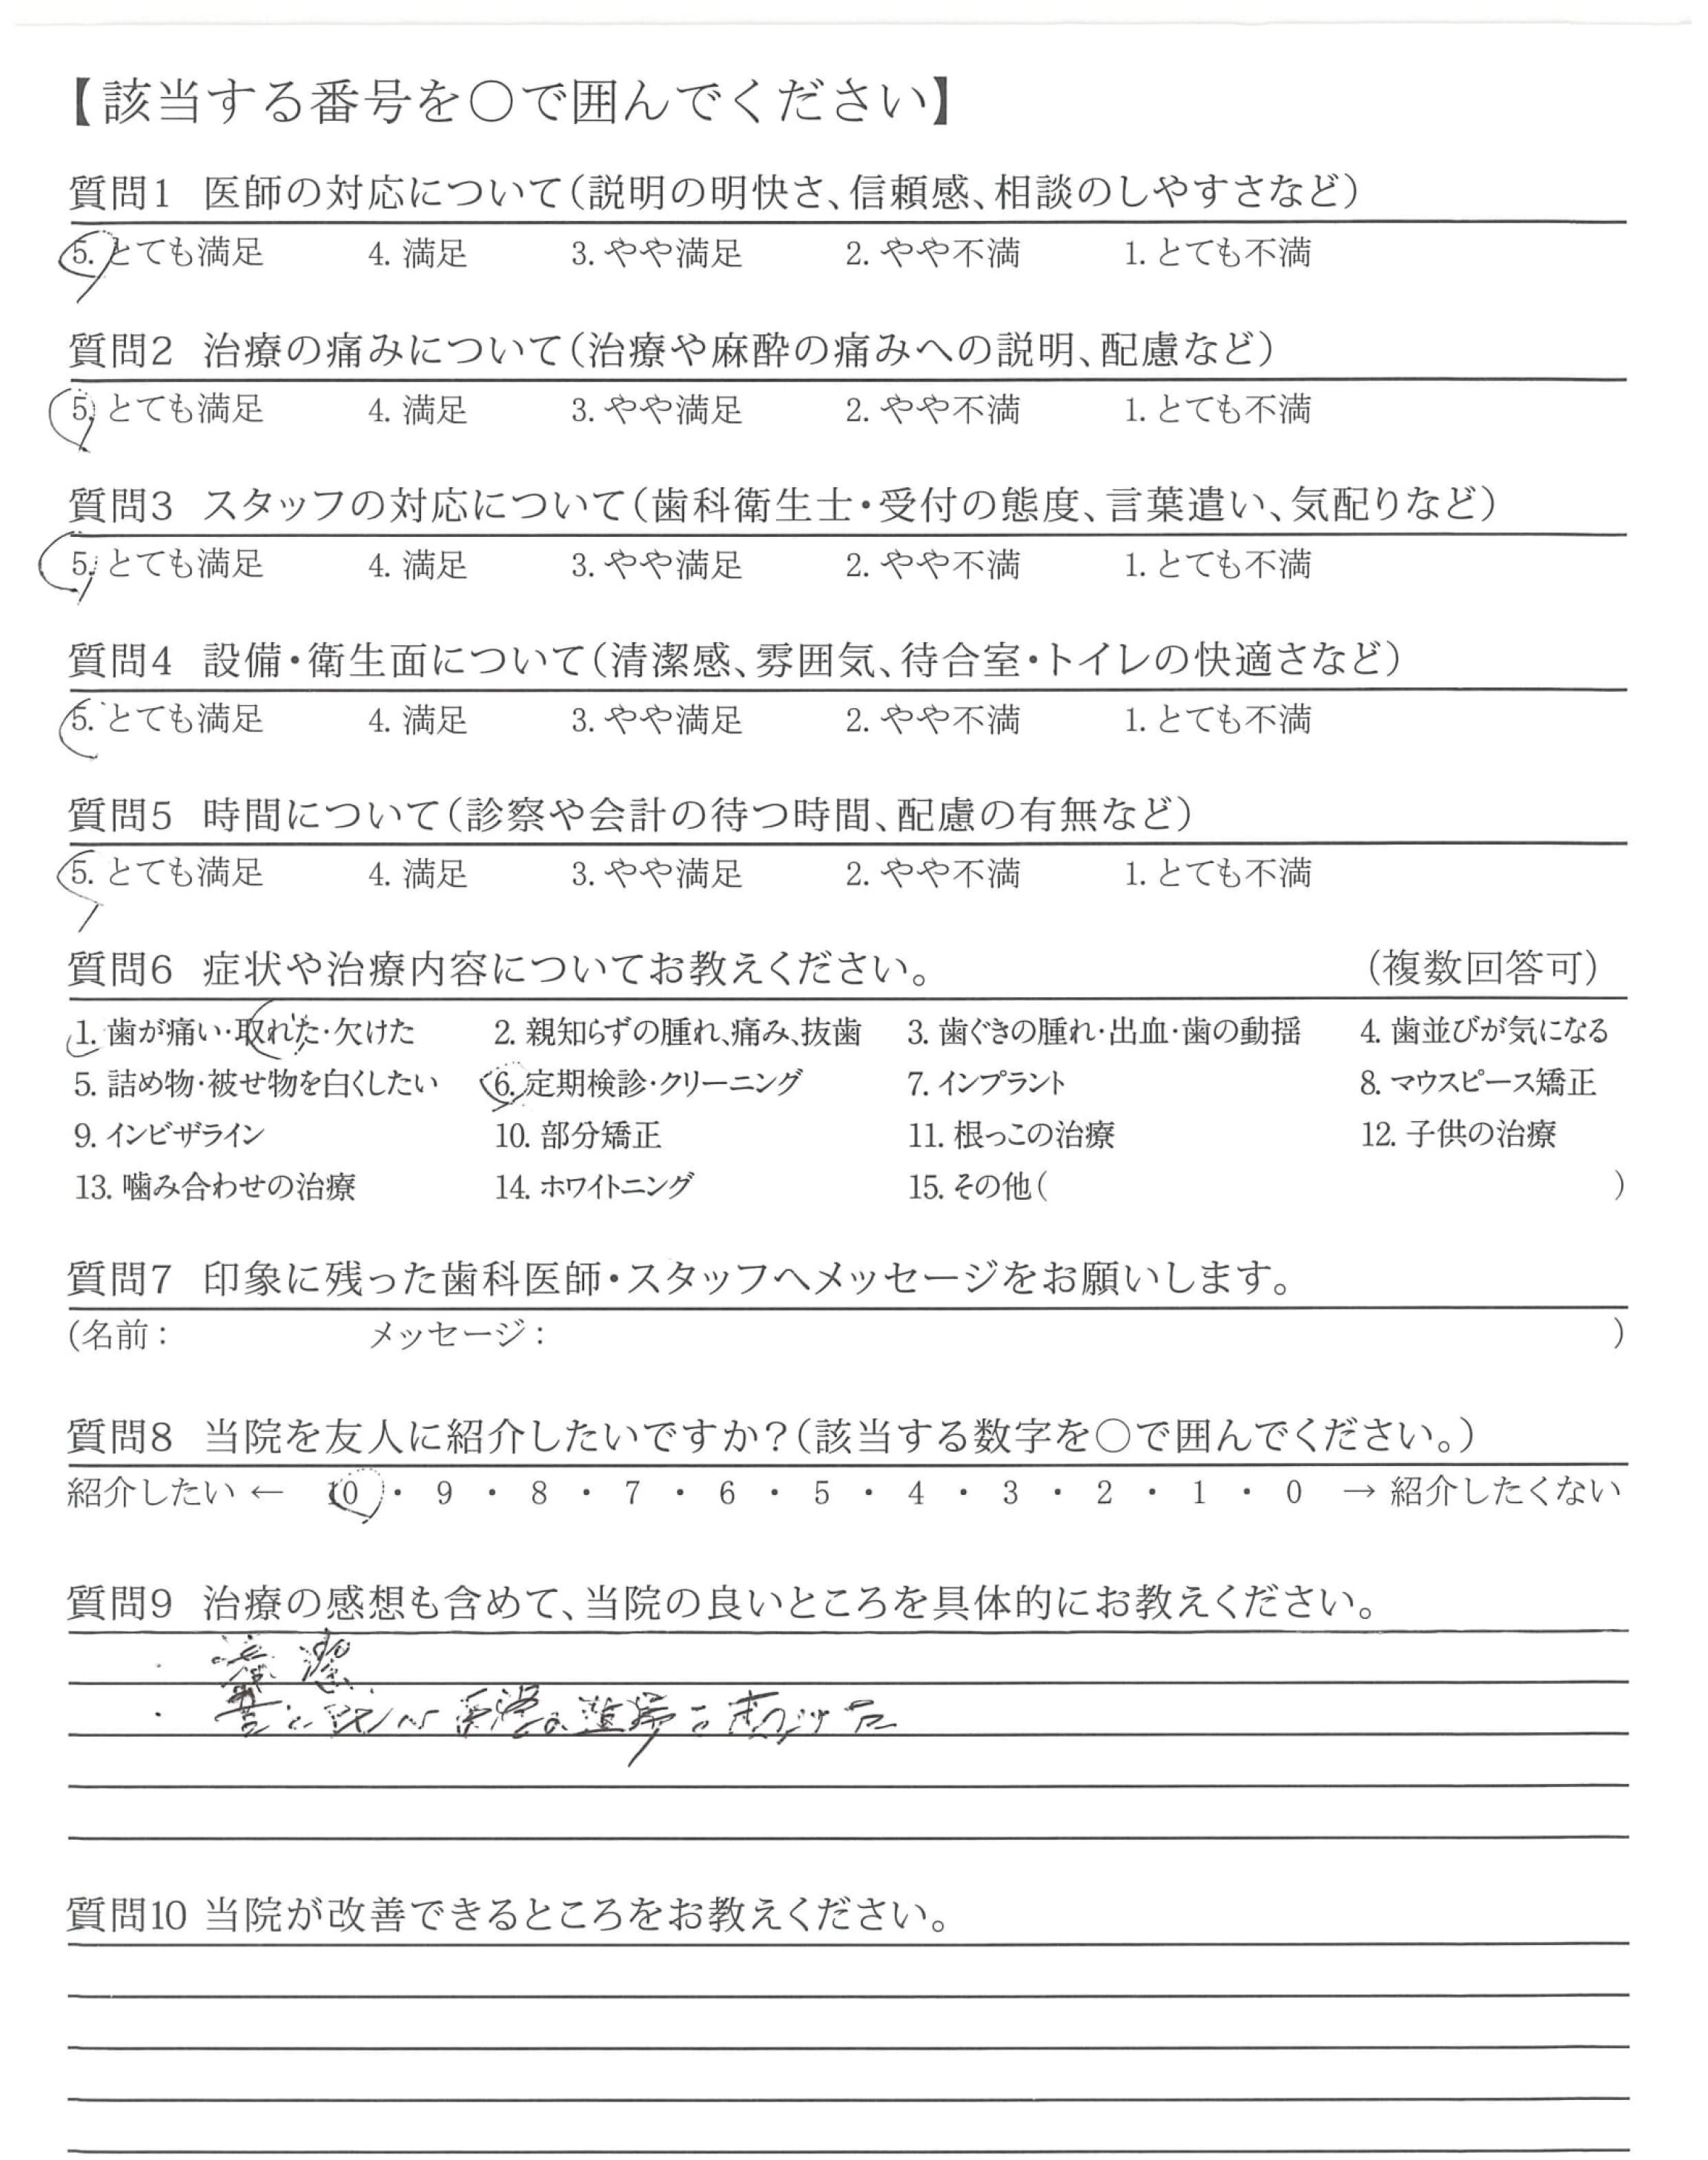 【該当する番号を○で囲んでください】
質問1 医師の対応について(説明の明快さ、信頼感、相談のしやすさなど)
5. とても満足 4. 満足 3. やや満足 2. やや不満 1. とても不満
質問2 治療の痛みについて(治療や麻酔の痛みへの説明、配慮など)
5. とても満足 4. 満足 3. やや満足 2. やや不満 1. とても不満
質問3 スタッフの対応について(歯科衛生士・受付の態度、言葉遣い、気配りなど)
5. とても満足 4. 満足 3. やや満足 2. やや不満 1. とても不満
質問4 設備・衛生面について(清潔感、雰囲気、待合室・トイレの快適さなど)
5. とても満足 4. 満足 3. やや満足 2. やや不満 1. とても不満
質問5 時間について(診察や会計の待つ時間、配慮の有無など)
5. とても満足 4. 満足 3. やや満足 2. やや不満 1. とても不満
質問6 症状や治療内容についてお教えください。 (複数回答可)
1. 歯が痛い・取れた・欠けた 2. 親知らずの腫れ、痛み、抜歯 3. 歯ぐきの腫れ・出血・歯の動揺 4. 歯並びが気になる
5. 詰め物・被せ物を白くしたい 6. 定期検診・クリーニング 7. インプラント 8. マウスピース矯正
9. インビザライン 10. 部分矯正 11. 根っこの治療 12. 子供の治療
13. 噛み合わせの治療 14. ホワイトニング 15. その他( )
質問7 印象に残った歯科医師・スタッフへメッセージをお願いします。
(名前: メッセージ: )
質問8 当院を友人に紹介したいですか?(該当する数字を○で囲んでください。)
紹介したい ← 10 ・ 9 ・ 8 ・ 7 ・ 6 ・ 5 ・ 4 ・ 3 ・ 2 ・ 1 ・ 0 → 紹介したくない
質問9 治療の感想も含めて、当院の良いところを具体的にお教えください。
・清潔
質問10 当院が改善できるところをお教えください。